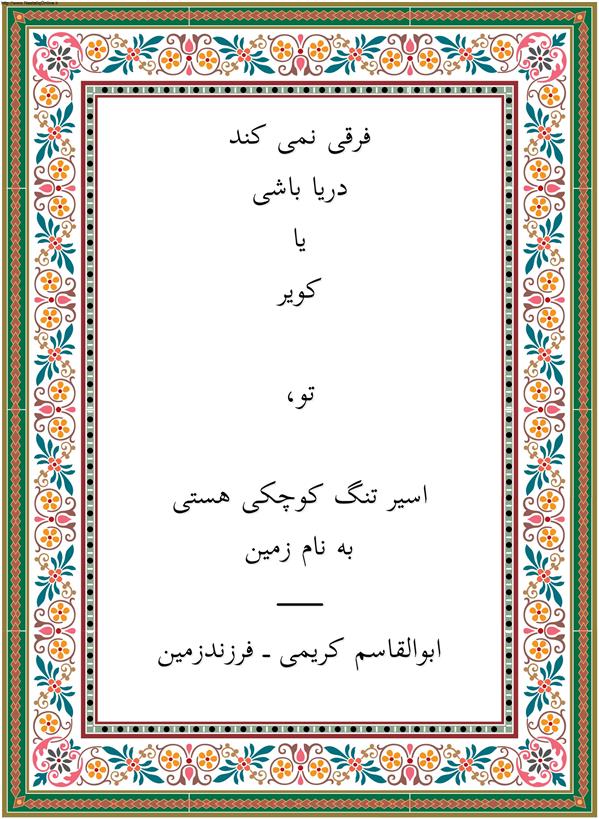 http://www.NastaliqOnline.ir
فرقی نمی کند
دریا باشی
یا
کویر
تو،
اسیر تنگ کوچکی هستی
به نام زمین
ابوالقاسم کریمی - فرزندزمین